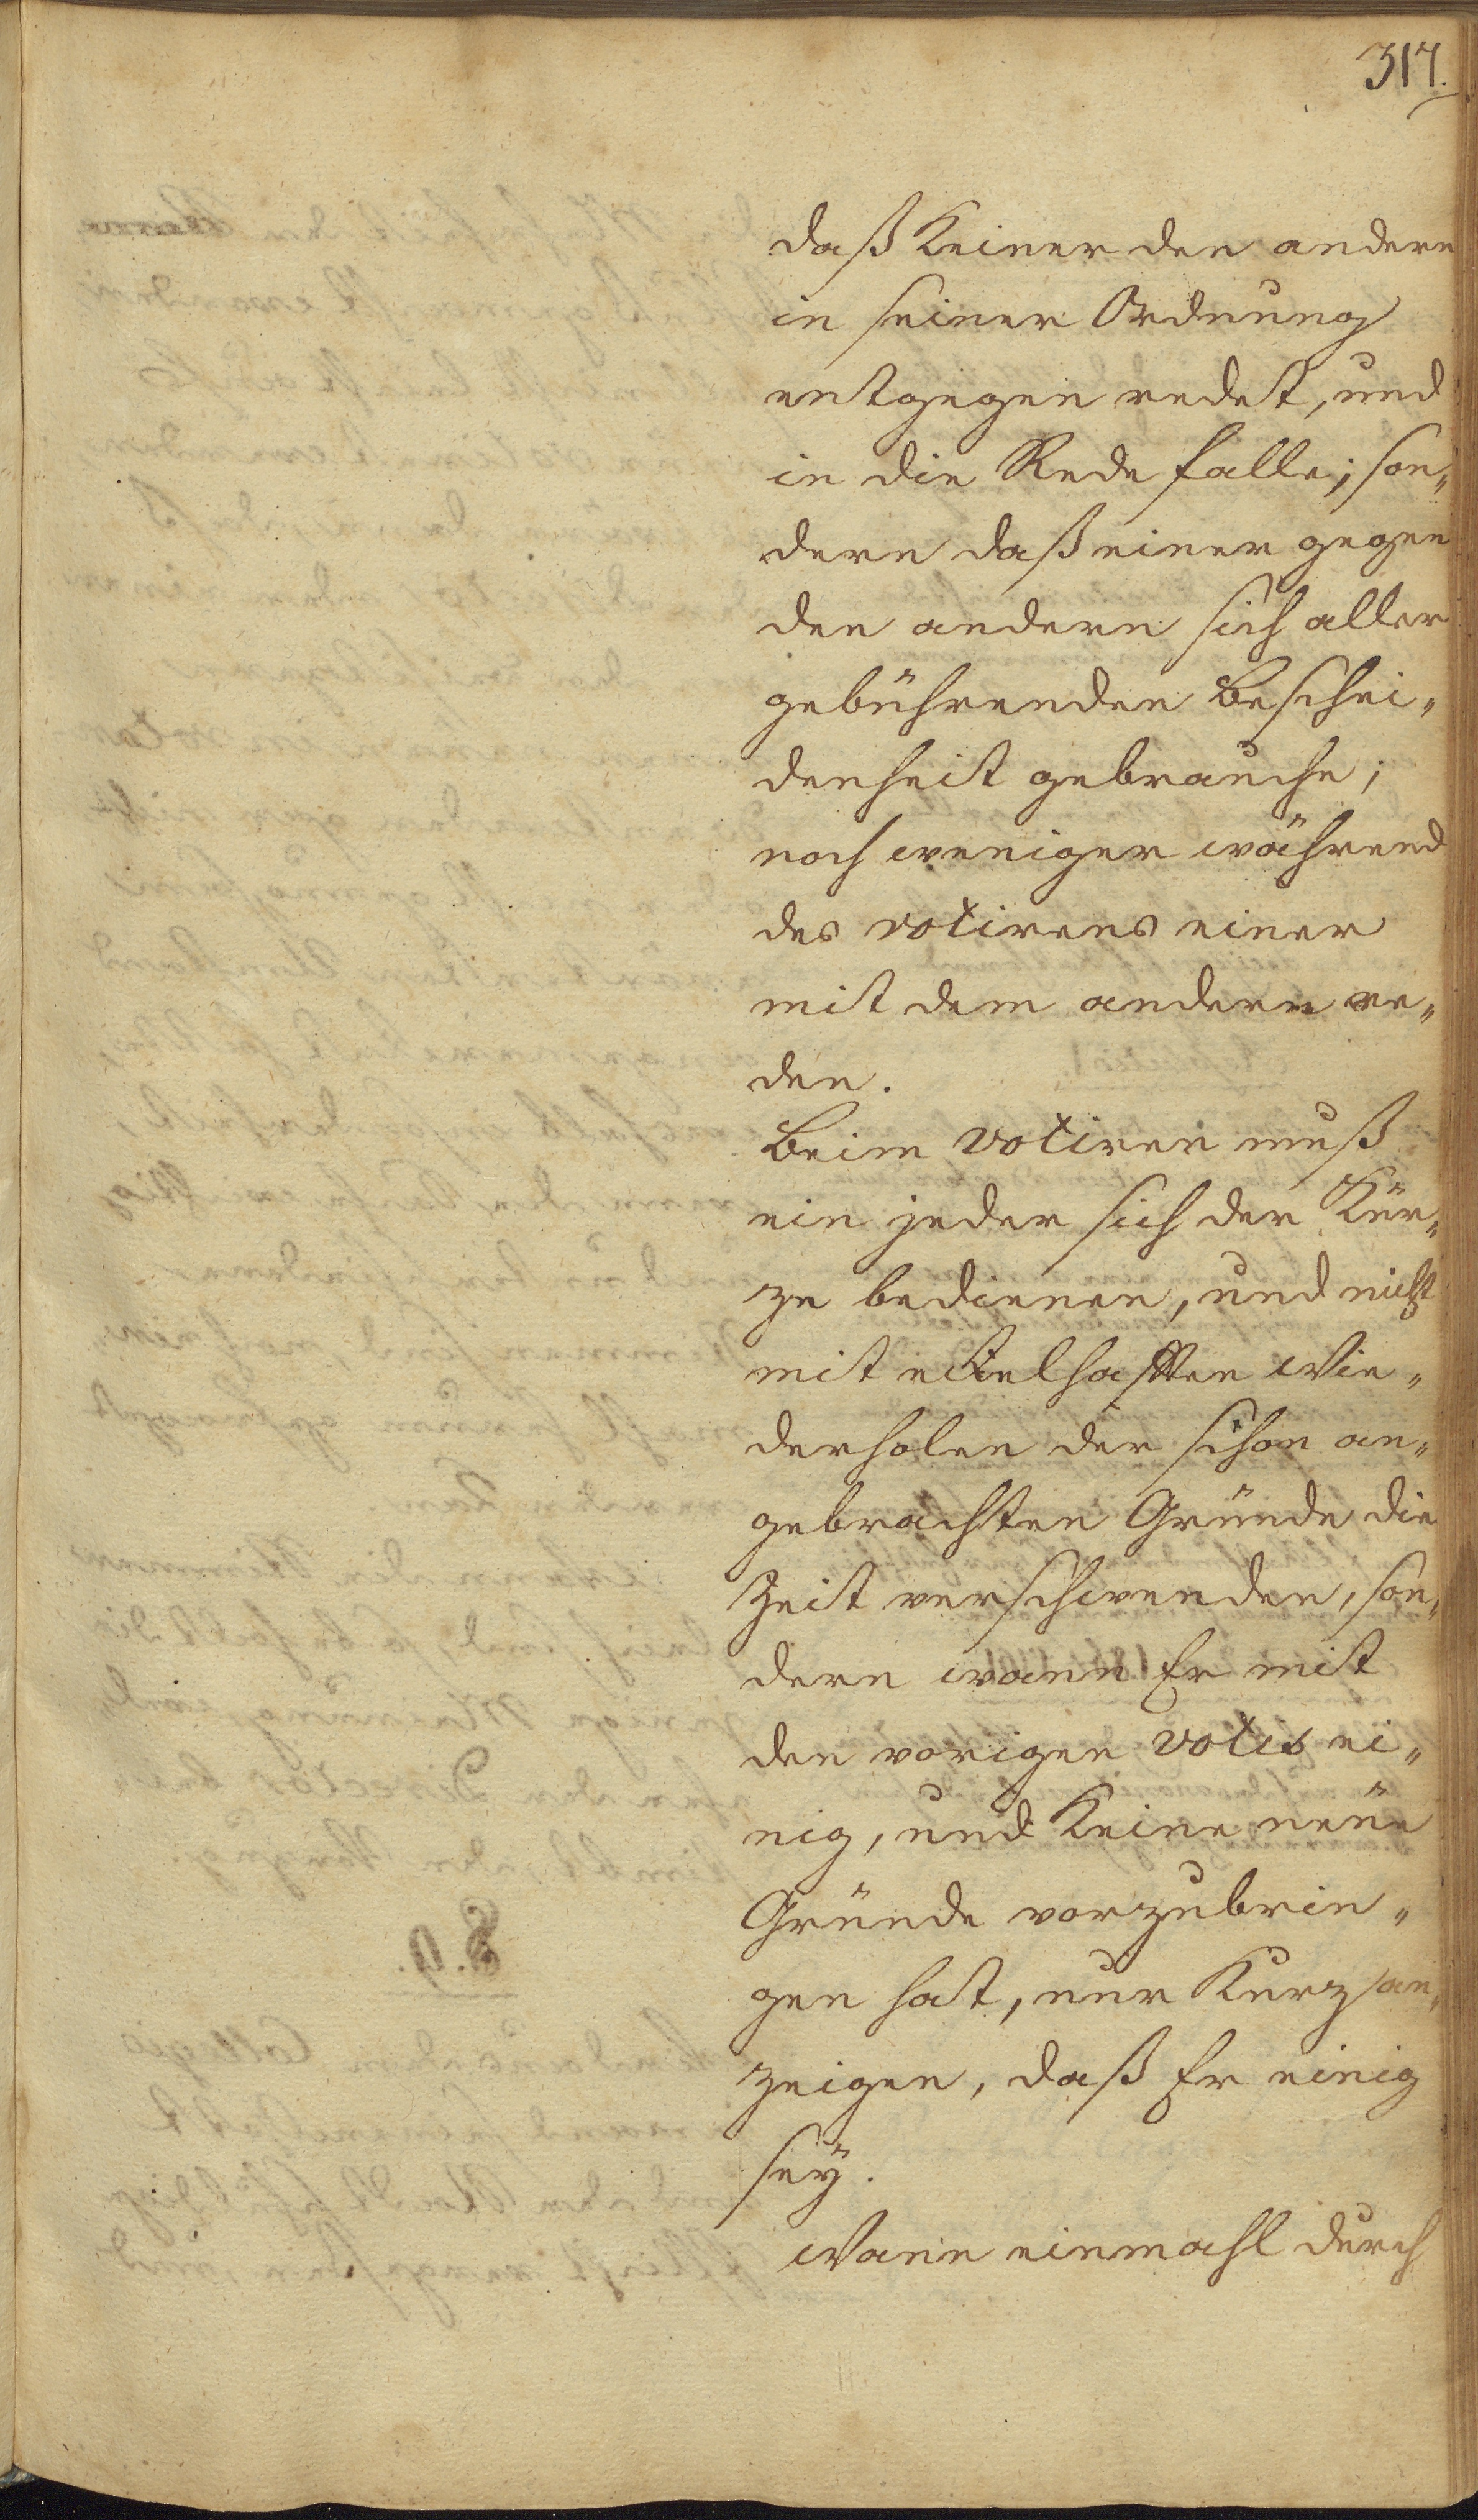 317.
daß Keiner den andern
in seiner Ordnung
entgegen redet, und
in die Rede falle; son„
dern daß einer gegen
den andern sich aller
gebührenden Beschei„
denheit gebrauche;
noch weniger während
des votirens einer
mit dem andern re„
den.
Beim votiren muß
ein jeder sich der Kür„
ze bedienen, und nicht
mit eckelhafften Wie„
derholen der schon an„
gebrachten Gründe die
Zeit verschwenden, son„
dern wann Er mit
den vorigen votis ei„
nig, und Keine neüe
Gründe vorzubrin„
gen hat, nur Kurz an„
zeigen, daß Er einig
seÿ.
Wann einmahl durch